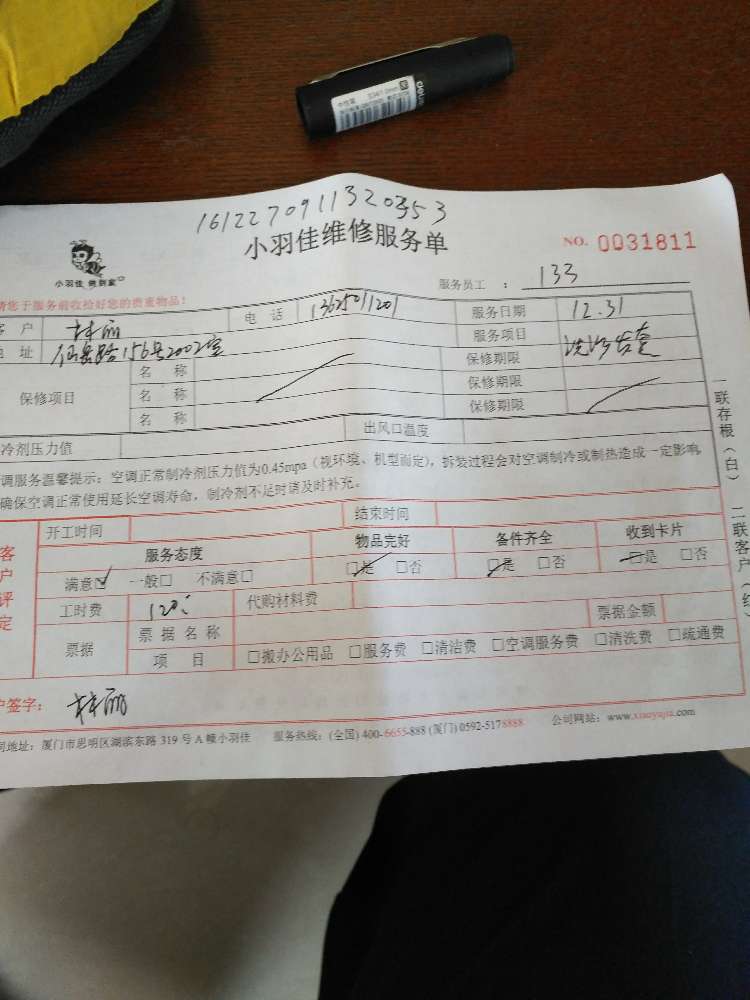 1612270911320353
小羽佳维修服务单
NO. 0031811
小羽佳 做到家
服务员工 : 133
请您于服务前收捡好您的贵重物品!
客 户 林丽 电 话 13625011201 服务日期 12.31
地 址 仙岳路156号2002室 服务项目
保修项目 名 称 保修期限
名 称 保修期限
名 称 保修期限
冷剂压力值 出风口温度
调服务温馨提示:空调正常制冷剂压力值为0.45mpa(视环境、机型而定),拆装过程会对空调制冷或制热造成一定影响
确保空调正常使用延长空调寿命,制冷剂不足时请及时补充。
开工时间 结束时间
客户评定
服务态度 物品完好 备件齐全 收到卡片
满意☑ 一般□ 不满意□ ☑是 □否 ☑是 □否 ☑是 □否
工时费 120 代购材料费
票据 票 据 名 称 票据金额
项 目 □搬办公用品 □服务费 □清洁费 □空调服务费 □清洗费 □疏通费
户签字: 林丽
司地址:厦门市思明区湖滨东路 319 号 A 幢小羽佳 服务热线:(全国) 400-6655-888 (厦门) 0592-5178888 公司网站:www.xiaoyujia.com
一联存根(白) 二联客户(红
中性笔
deli